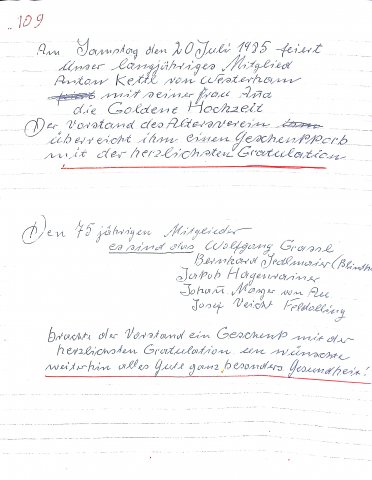 109
Am Samstag den 20 Juli 1985 feiert
unser langjähriges Mitglied
Anton Kettl von Westerham
mit seiner frau
die Goldene Hochzeit
Der Vorstand des Altersverein
überreicht ihm einen Geschenkkorb
mit der herzlichsten Gratulation
Den 75 jährigen Mitglieder
es sind das Wolfgang Grassl
Bernhard
Jakob Hagenrainer
Johann von Au
Josef Veicht Feldolling
brachte der Vorstand ein Geschenk mit der
herzlichsten Gratulation un wünschte
weiterhin alles Gute ganz besonders Gesundheit!